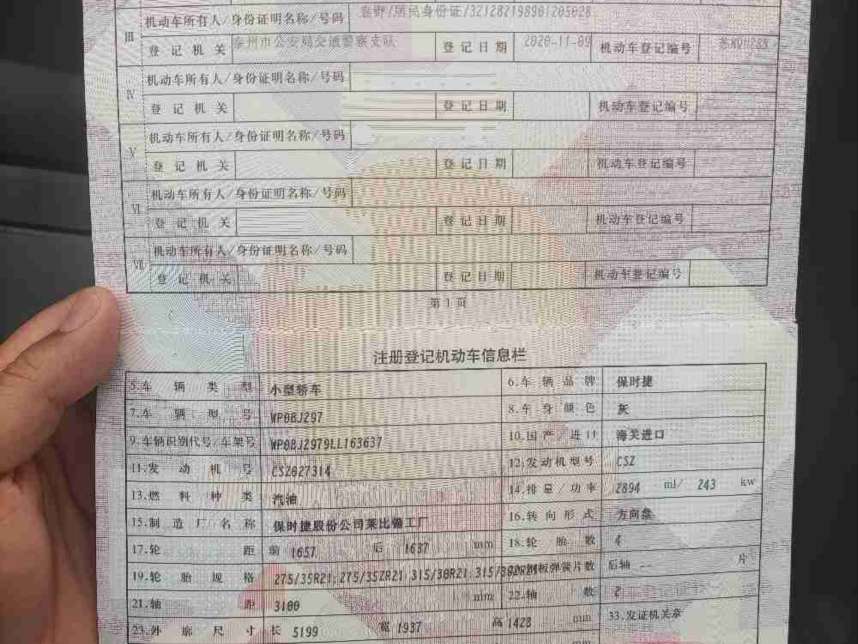 III 机动车所有人/身份证明名称/号码 /居民身份证/321282198901205028
登记机关 泰州市公安局交通警察支队 登记日期 2020-11-09 机动车登记编号
IV 机动车所有人/身份证明名称/号码
登记机关 登记日期 机动车登记编号
V 机动车所有人/身份证明名称/号码
登记机关 登记日期 机动车登记编号
VI 机动车所有人/身份证明名称/号码
登记机关 登记日期 机动车登记编号
VII 机动车所有人/身份证明名称/号码
登记机关 登记日期 机动车登记编号
第1页
注册登记机动车信息栏
5.车辆类型 小型轿车 6.车辆品牌 保时捷
7.车辆型号 WP0BJ297 8.车身颜色 灰
9.车辆识别代号/车架号 WP0BJ2979LL163637 10.国产/进口 海关进口
11.发动机号 CSZ027314 12.发动机型号 CSZ
13.燃料种类 汽油 14.排量/功率 2894 ml/ 243 kw
15.制造厂名称 保时捷股份公司莱比锡工厂 16.转向形式 方向盘
17.轮距 前 1657 后 1637 mm 18.轮胎数 4
19.轮胎规格 275/35R21;275/35ZR21 315/30R21;315/ 钢板弹簧片数 后轴 -- 片
21.轴距 3100 mm 22.轴数 2
23.外廓尺寸 长 5199 宽 1937 高 1428 mm 33.发证机关章